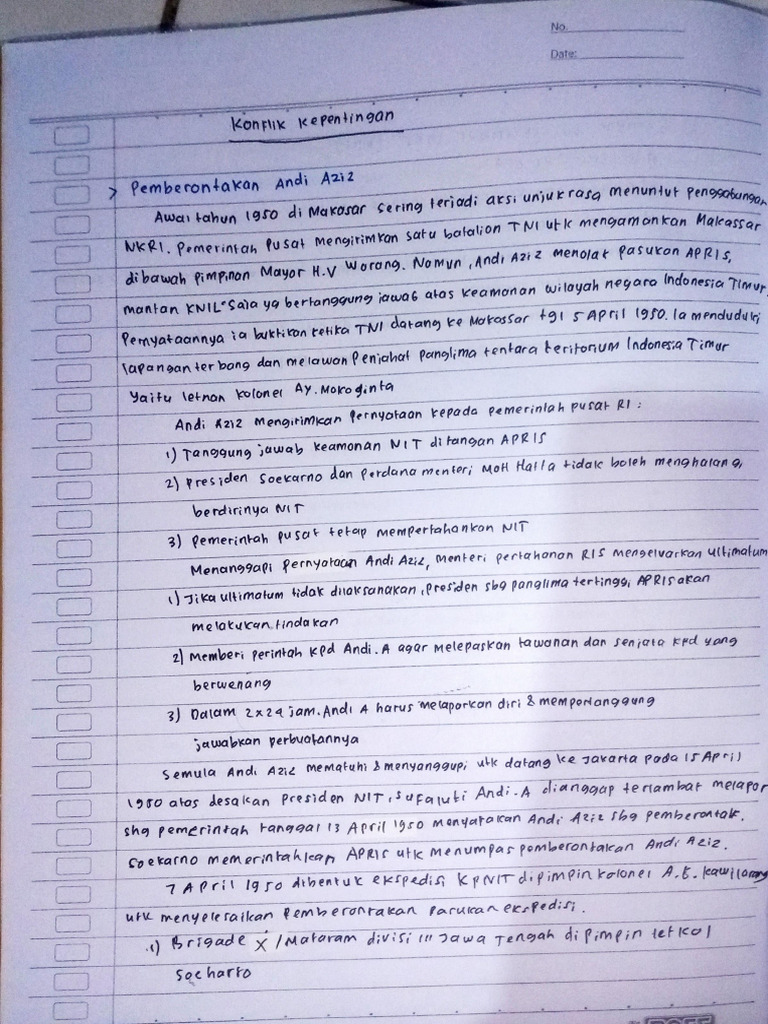 No.
Date:
Konflik Kepentingan
> Pemberontakan Andi Aziz
Awal tahun 1950 di Makasar sering terjadi aksi unjuk rasa menuntut penggabungan
NKRI. Pemerintah Pusat Mengirimkan satu batalion TNI utk mengamankan Makassar
dibawah pimpinan Mayor H.V Worang. Namun, Andi Aziz menolak pasukan APRIS,
mantan KNIL saja yg bertanggung jawab atas keamanan wilayah negara Indonesia Timur,
Pernyataannya ia buktikan ketika TNI datang ke Makassar tgl 5 April 1950. Ia menduduki
lapangan terbang dan melawan Penjahat panglima tentara teritorium Indonesia Timur
Yaitu letnan kolonel AY. Mokoginta
Andi Aziz mengirimkan Pernyataan kepada pemerintah pusat RI :
1) Tanggung jawab keamanan NIT ditangan APRIS
2) Presiden Soekarno dan Perdana menteri Moh Hatta tidak boleh menghalangi
berdirinya NIT
3) Pemerintah pusat tetap mempertahankan NIT
Menanggapi pernyataan Andi Aziz, menteri pertahanan RIS mengeluarkan Ultimatum
1) Jika ultimatum tidak dilaksanakan, presiden sbg panglima tertinggi APRIS akan
melakukan tindakan
2) Memberi perintah kpd Andi. A agar melepaskan tawanan dan senjata kpd yang
berwenang
3) Dalam 2x24 jam. Andi A harus melaporkan diri & mempertanggung
jawabkan perbuatannya
Semula Andi Aziz mematuhi & menyanggupi utk datang ke Jakarta pada 15 April
1950 atas desakan Presiden NIT, Andi. A dianggap terlambat melapor
shg pemerintah tanggal 13 April 1950 menyatakan Andi Aziz sbg pemberontak.
Soekarno memerintahkan APRIS utk menumpas pemberontakan Andi Aziz.
7 April 1950 dibentuk ekspedisi KPNIT dipimpin kolonel A.E. Kawilarang
utk menyelesaikan Pemberontakan Pasukan ekspedisi.
1) Brigade X /Mataram divisi III Jawa Tengah dipimpin letkol
Soeharto